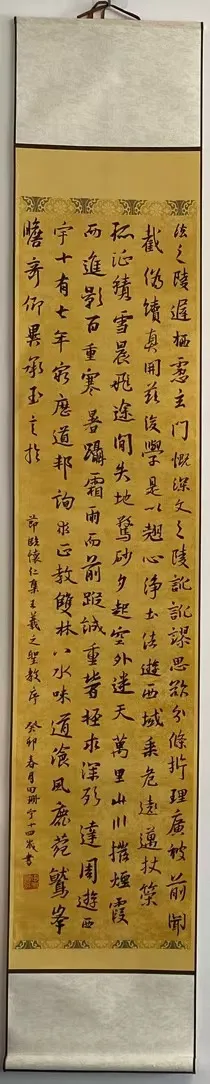 法之陵遲栖慮玄門慨深文之陵訛訛謬思欲分條析理廣彼前聞
截偽續真開茲後學是以翹心淨土法遊西域乘危遠邁杖策
孤征積雪晨飛途間失地驚砂夕起空外迷天萬里山川撥煙霞
而進影百重寒暑躡霜雨而前蹤誠重求深達周遊西
宇十有七年窮歷道邦詢求正教雙林八水味道飡風鹿菀鷲峯
瞻奇仰異承至言於
節臨懷仁集王羲之聖教序 癸卯春月田珊宇十四歲書